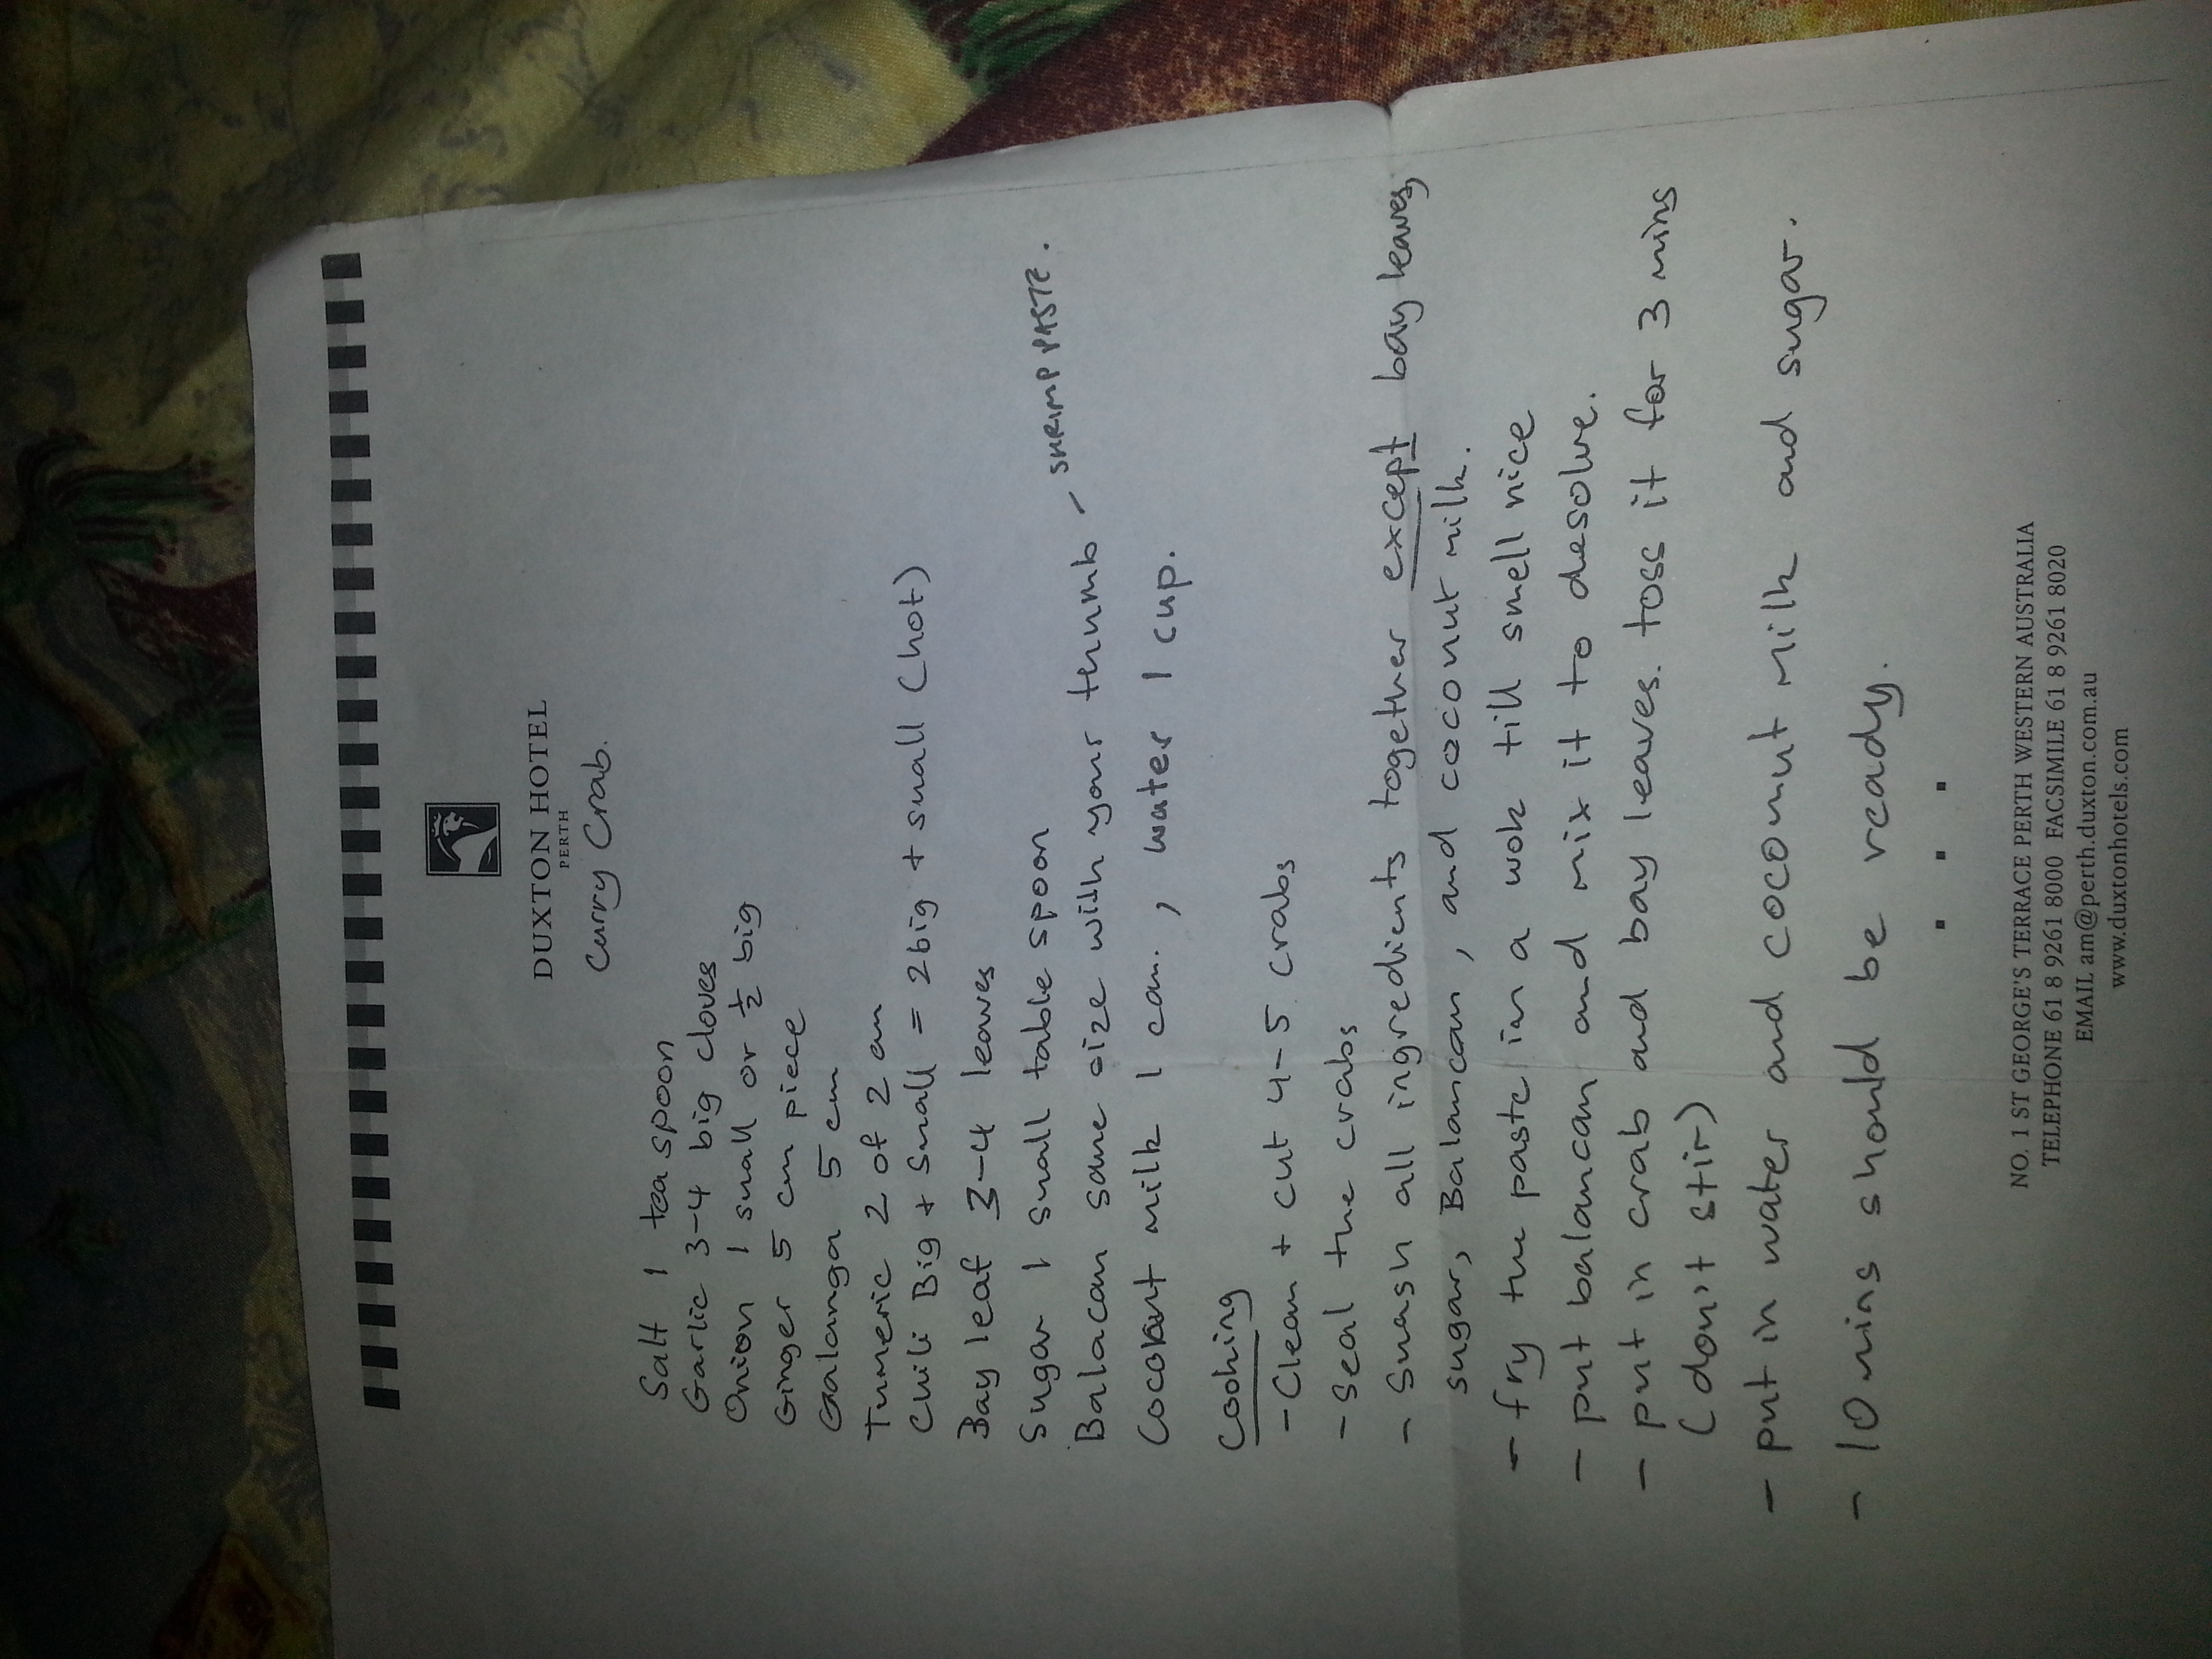 DUXTON HOTEL
PERTH
Curry Crab.
Salt 1 tea spoon
Garlic 3-4 big cloves
Onion 1 small or ½ big
Ginger 5 cm piece
Galanga 5 cm
Tumeric 2 of 2 cm
Chili Big + Small = 2 big + small (hot)
Bay leaf 3-4 leaves
Sugar 1 small table spoon
Balacan same size with your thumb - SHRIMP PASTE.
Coconut milk 1 can. , water 1 cup.
Cooking
- Clean + cut 4-5 crabs
- Seal the crabs
- Smash all ingredients together except bay leaves,
sugar, Balancan, and coconut milk.
- fry the paste in a wok till smell nice
- put balancan and mix it to desolve.
- put in crab and bay leaves. toss it for 3 mins
(don't stir)
- put in water and coconut milk and sugar.
- 10 mins should be ready.
NO. 1 ST GEORGE'S TERRACE PERTH WESTERN AUSTRALIA
TELEPHONE 61 8 9261 8000 FACSIMILE 61 8 9261 8020
EMAIL am@perth.duxton.com.au
www.duxtonhotels.com